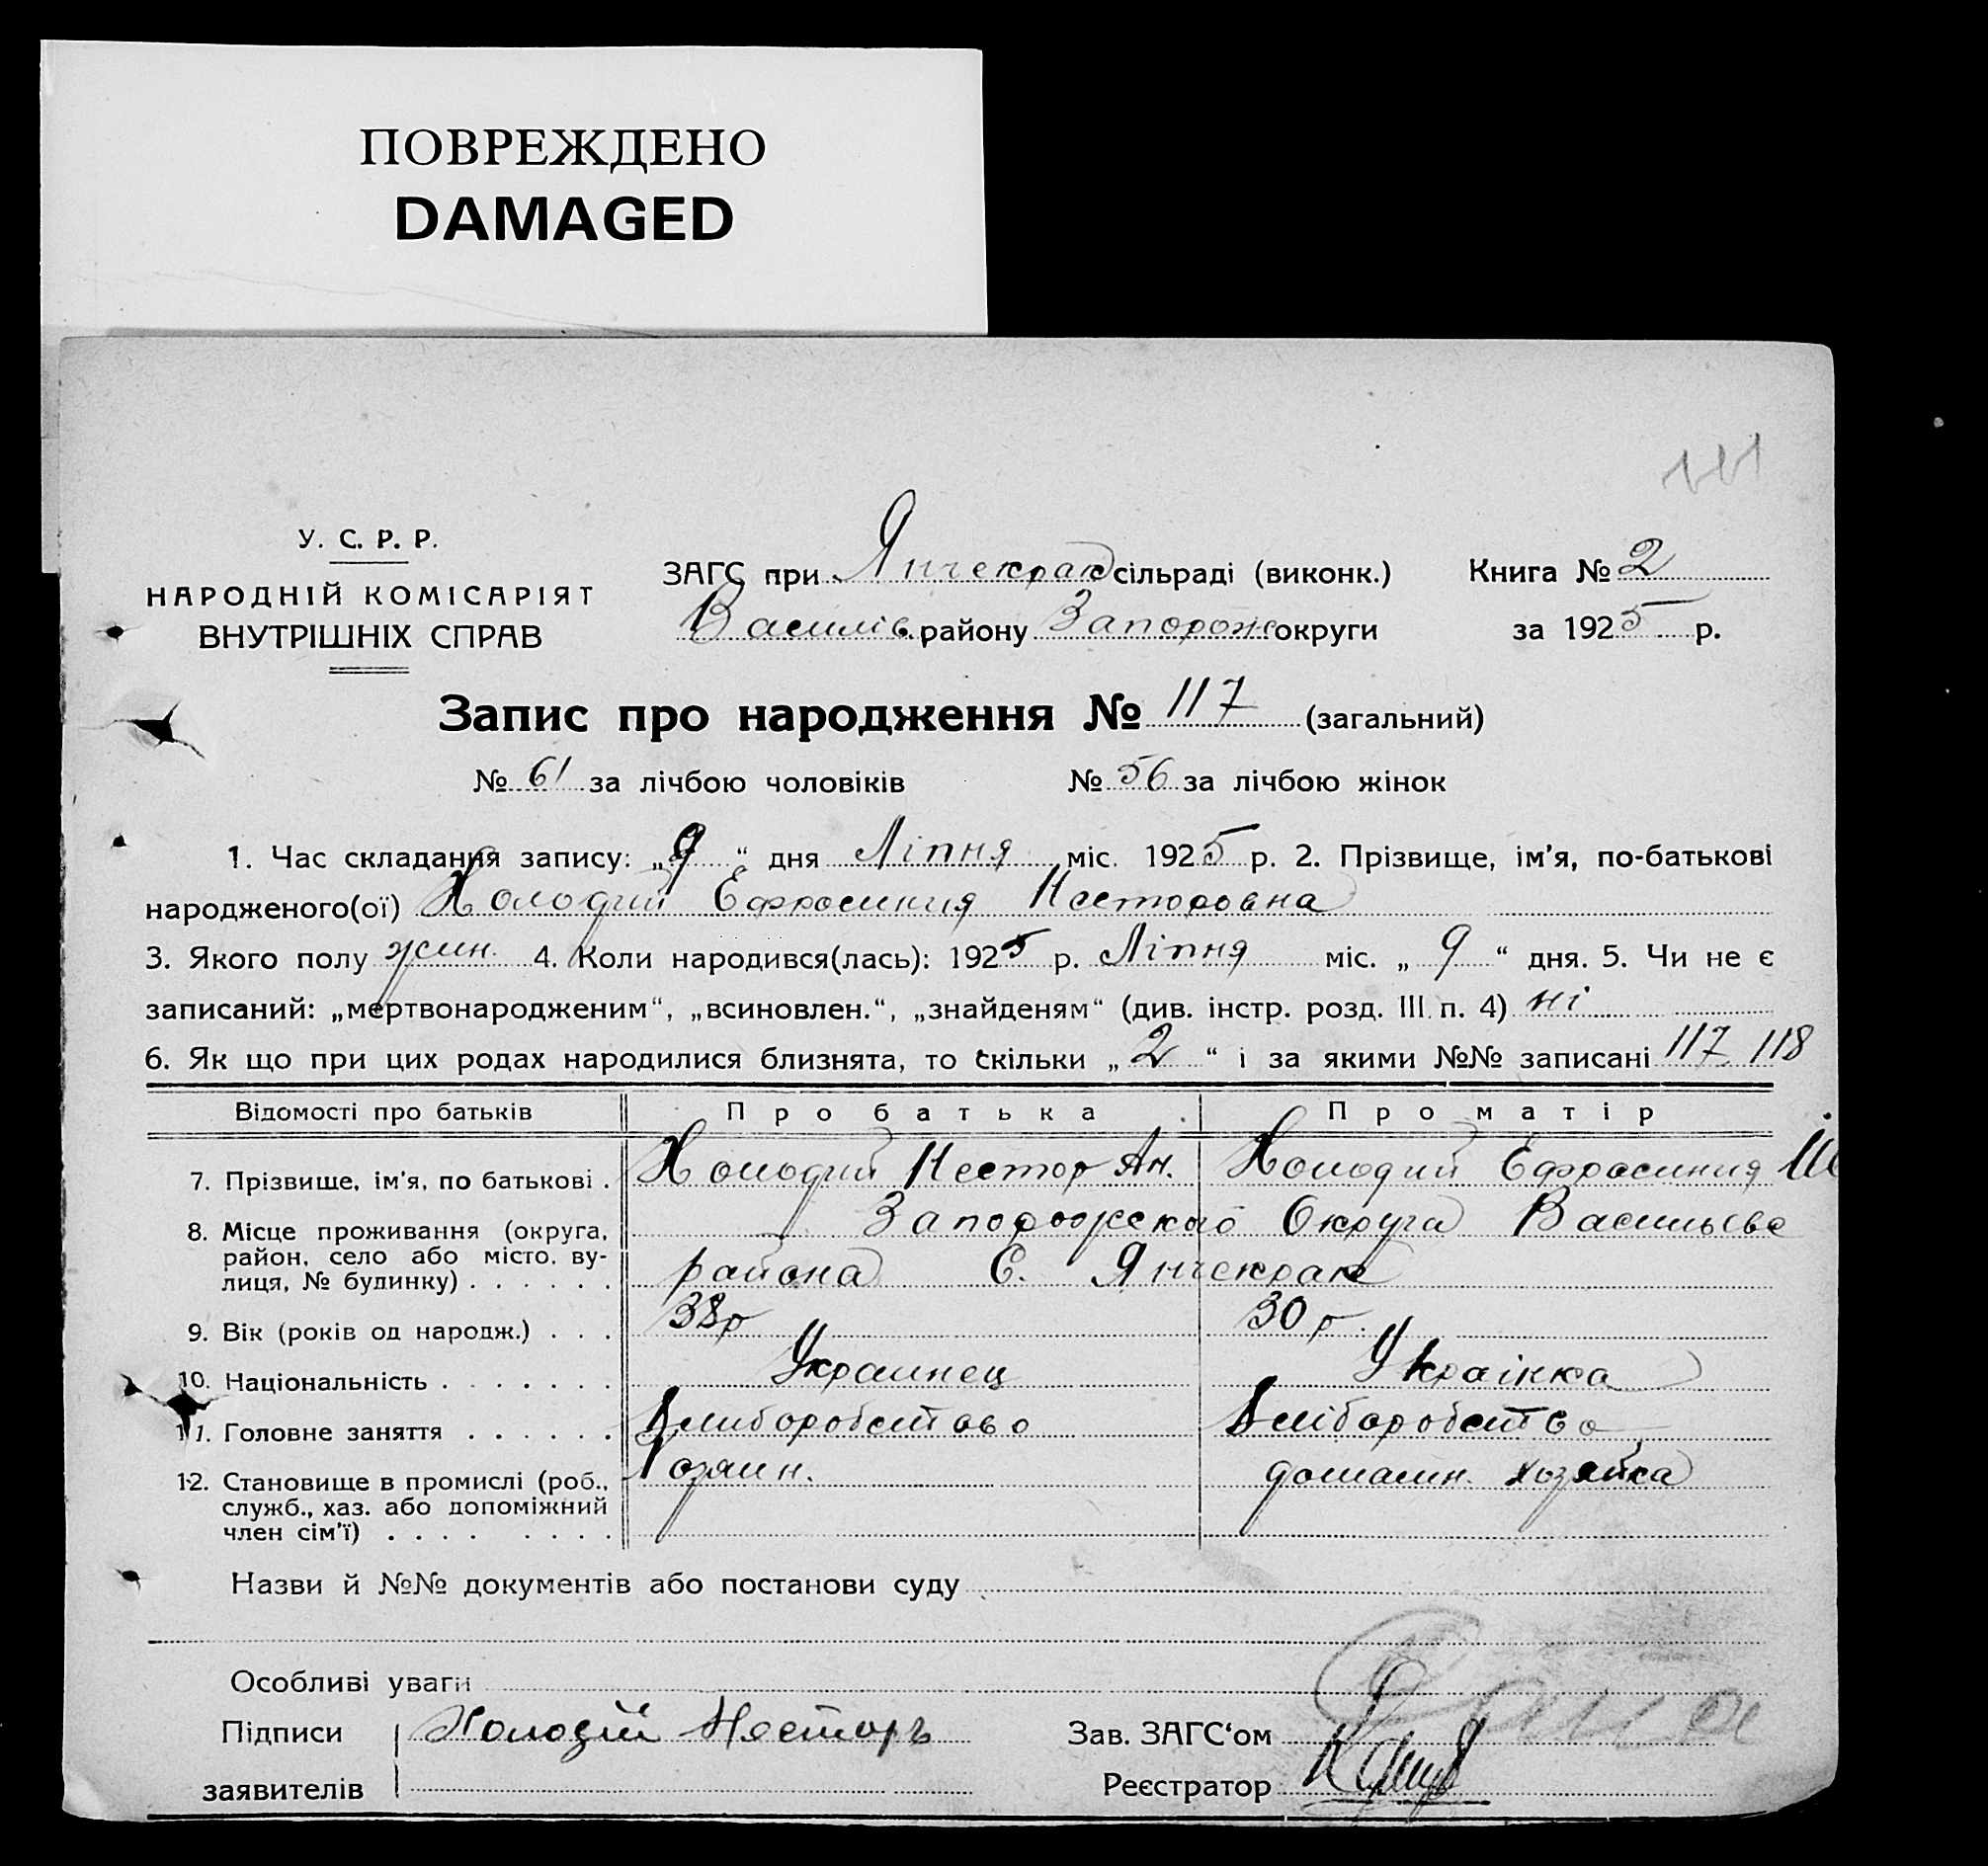 ПОВРЕЖДЕНО
DAMAGED
У. С. Р. Р.
НАРОДНІЙ КОМІСАРІЯТ
ВНУТРІШНІХ СПРАВ
ЗАГС при Янчекрак сільраді (виконк.) Книга № 2
Василів. району Запорож округи за 1925 р.
Запис про народження № 117 (загальний)
№ 61 за лічбою чоловіків № 56 за лічбою жінок
1. Час складання запису: „9“ дня Ліпня міс. 1925 р. 2. Прізвище, ім'я, по-батькові
народженого(ої) Холодий Ефросиния Несторовна
3. Якого полу жин. 4. Коли народився(лась): 1925 р. Ліпня міс. „9“ дня. 5. Чи не є
записаний: „мертвонародженим“, „всиновлен.“, „знайденям“ (див. інстр. розд. III п. 4) ні
6. Як що при цих родах народилися близнята, то скільки „2“ і за якими №№ записані 117 118
Відомості про батьків Про батька Про матір
7. Прізвище, ім'я, по батькові . Холодий Нестор Ан. Холодий Ефросиния
8. Місце проживання (округа, район, село або місто, ву-
лиця, № будинку) . . . . . . Запорожского Округа Васильевс
района С. Янчекрак
9. Вік (років од народж.) . . . 38 р 30 р.
10. Національність . . . . . . . Украинец Украінка
11. Головне заняття . . . . . . Хлиборобство Хліборобство
12. Становище в промислі (роб., служб., хаз. або допоміжний
член сім'ї) . . . . . . . . Хозяин. домашн. хозяйка
Назви й №№ документів або постанови суду
Особливі уваги
Підписи Холодій Несторъ Зав. ЗАГС‘ом
заявителів Реєстратор